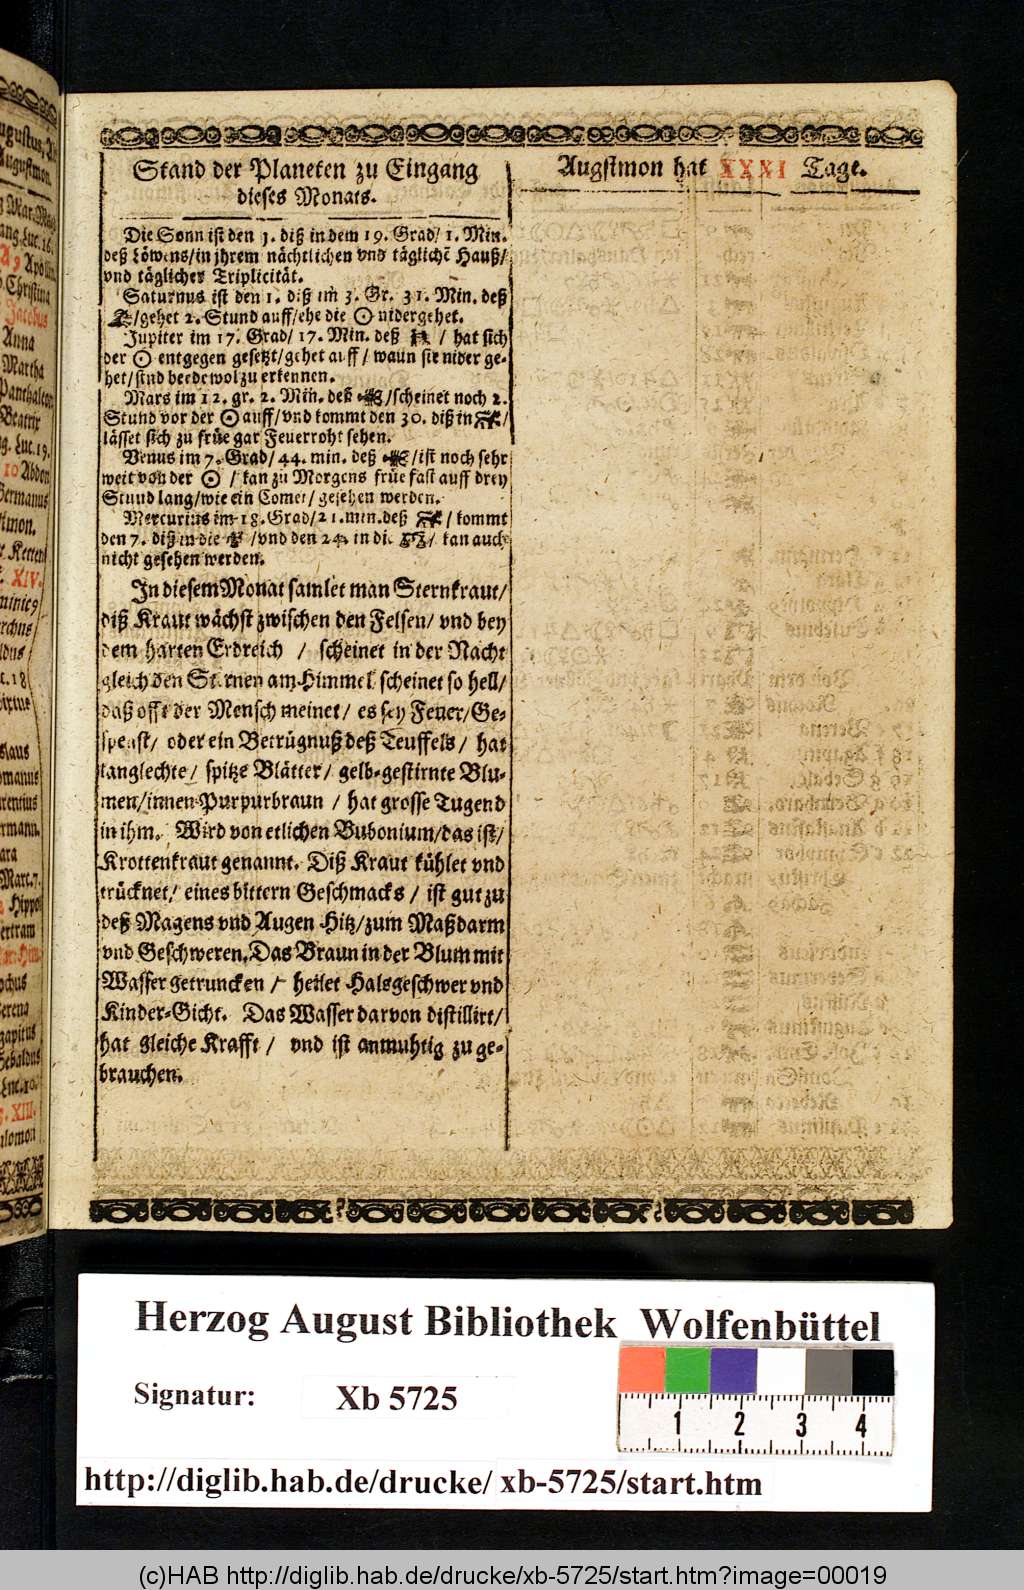 ugustus,
Augstmon.
Mar. Mag
ang. Luc. 16.
A 9 Apollin
Christina
Jacobus
Anna
Martha
Panthaleo
Beatrix
g. Luc. 19.
10 Abdon
Germanus
stmon.
Ketten
XIV.
minic9
rchus
Stand der Planeten zu Eingang
dieses Monats.
Die Sonn ist den 1. diß in dem 19. Grad/ 1. Min.
deß Löwens/in jhrem nächtlichen vnd täglichē Hauß/
vnd täglicher Triplicität.
Saturnus ist den 1. diß im 3. Gr. 31. Min. deß
♎/gehet 2. Stund auff/ehe die ☉ nidergehet.
Jupiter im 17. Grad/ 17. Min. deß / hat sich
der ☉ entgegen gesetzt/gehet auff/ wann sie nider ge-
het/sind beede wol zu erkennen.
Mars im 12. gr. 2. Min. deß /scheinet noch 2.
Stund vor der ☉ auff/vnd kommt den 30. diß in /
lässet sich zu früe gar Feuerroht sehen.
Venus im 7. Grad/ 44. min. deß /ist noch sehr
weit von der ☉ / kan zu Morgens früe fast auff drey
Stund lang/wie ein Comet/ gesehen werden.
Mercurius im 18. Grad/21. min. deß / kommt
den 7. diß in die /vnd den 24. in di / kan auch
nicht gesehen werden.
In diesem Monat samlet man Sternkraut/
diß Kraut wächst zwischen den Felsen/ vnd bey
dem harten Erdreich / scheinet in der Nacht
gleich den Sternen am Himmel scheinet so hell/
daß offt der Mensch meinet/ es sey Feuer/Ge-
spenst/ oder ein Betrügnuß deß Teuffels/ hat
langlechte/ spitze Blätter/ gelb-gestirnte Blu-
men/innen Purpurbraun / hat grosse Tugend
in ihm. Wird von etlichen Bubonium/das ist/
Krottenkraut genannt. Diß Kraut kühlet vnd
trücknet/ eines bittern Geschmacks / ist gut zu
deß Magens vnd Augen Hitz/zum Maßdarm
vnd Geschweren. Das Braun in der Blum mit
Wasser getruncken / heilet Halsgeschwer vnd
Kinder-Gicht. Das Wasser darvon distillirt/
hat gleiche Krafft / vnd ist anmuhtig zu ge-
brauchen.
Augstmon hat XXXI Tage.
Herzog August Bibliothek Wolfenbüttel
Signatur: Xb 5725
1 2 3 4
http://diglib.hab.de/drucke/ xb-5725/start.htm
(c)HAB http://diglib.hab.de/drucke/xb-5725/start.htm?image=00019